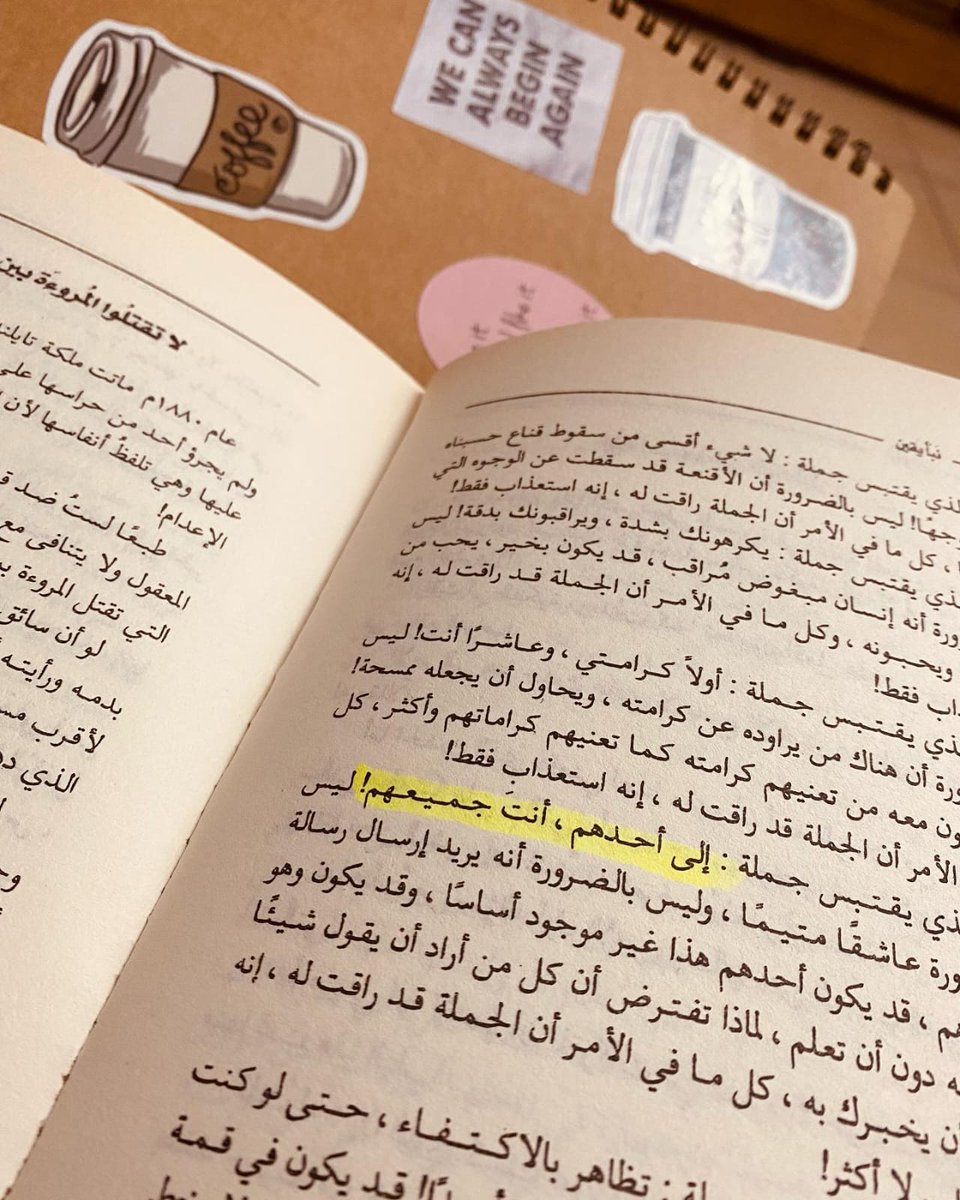 coffee
WE CAN
ALWAYS
BEGIN
AGAIN
نبأ يقين
لذي يقتبس جملة : لا شيء أقسى من سقوط قناع حسبناه
وجهًا! ليس بالضرورة أن الأقنعة قد سقطت عن الوجوه التي
، كل ما في الأمر أن الجملة راقت له ، إنه استعذاب فقط!
لذي يقتبس جملة : يكرهونك بشدة ، ويراقبونك بدقة! ليس
ورة أنه إنسان مبغوض مُراقب ، قد يكون بخير ، يحب من
ويحبونه ، وكل ما في الأمر أن الجملة قد راقت له ، إنه
ذاب فقط!
لذي يقتبس جملة : أولاً كرامتي ، وعاشرًا أنت! ليس
ورة أن هناك من يراوده عن كرامته ، ويحاول أن يجعله ممسحة!
ون معه من تعنيهم كرامته كما تعنيهم كراماتهم وأكثر ، كل
الأمر أن الجملة قد راقت له ، إنه استعذابٍ فقط!
لذي يقتبس جملة : إلى أحدهم ، أنت جميعهم! ليس
ورة عاشقًا متيمًا ، وليس بالضرورة أنه يريد إرسال رسالة
هم ، قد يكون أحدهم هذا غير موجود أساسًا ، وقد يكون وهو
ه دون أن تعلم ، لماذا تفترض أن كل من أراد أن يقول شيئًا
ن يخبرك به ، كل ما في الأمر أن الجملة قد راقت له ، إنه
لا أكثر!
لة : تظاهر بالاكتفاء ، حتى لو كنت
قد يكون في قمة
لا تقتلُوا المُروءَة بين
عام ١٨٨٠م ماتت ملكة تايلند
ولم يجرؤ أحد من حراسها على
عليها وهي تلفظُ أنفاسها لأن
الإعدام!
طبعًا لستُ ضد
المعقول ولا يتنافى مع
التي تقتل المروءة
لو أن سائق
بدمه ورأيته
لأقرب
الذي